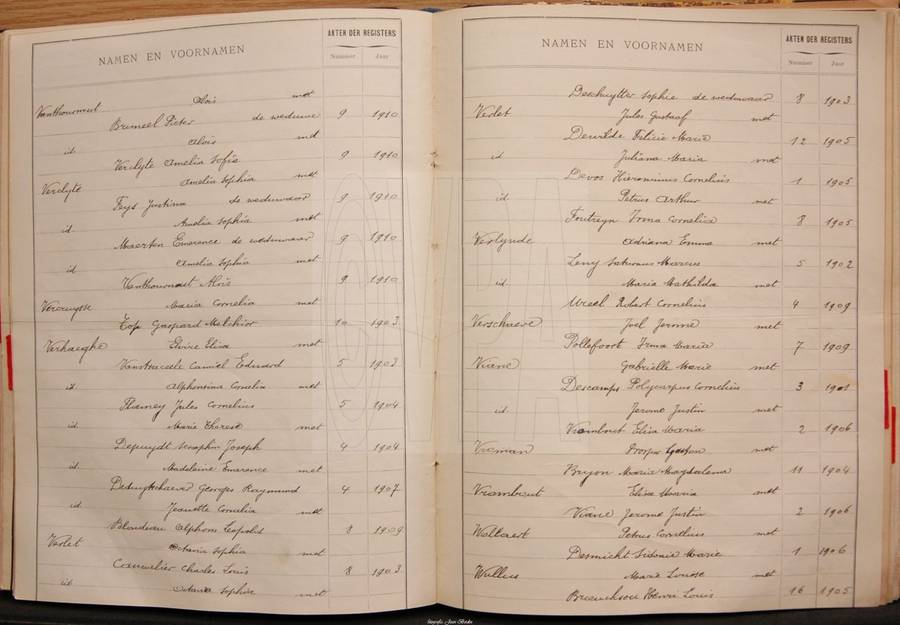 NAMEN EN VOORNAMEN
AKTEN DER REGISTERS
Nummer Jaar
Vanthournout Aloïs met
Bruneel Pieter de weduwe 9 1910
id Aloïs met
Verslyte Amelia Sofie 9 1910
Verslyte Amelia Sophia met
Feys Justina de weduwaar 9 1910
id Amelia Sophia met
Maerten Emerence de weduwaar 9 1910
id Amelia Sophia met
Vanthournout Aloïs 9 1910
Vercruysse Maria Cornelia met
Top Gaspard Melchior 10 1903
Verhaeghe Elvire Elisa met
Camiel Eduard 5 1903
id Alphonsina Cornelia met
Jules Cornelius 5 1904
id Marie Therese met
Depuydt Seraphin Joseph 4 1904
id Madeleine Emerence met
Georges Raymund 4 1907
id Jeanette Cornelia met
Blondeau Alphons Leopold 8 1909
Verlet Octavia Sophia met
Couwelier Charles Louis 8 1903
id Octavie Sophie met
NAMEN EN VOORNAMEN
AKTEN DER REGISTERS
Nummer Jaar
Deschuytter Sophie de weduwaar 8 1903
Verlet Jules Gustaaf met
Dewilde Felicie Marie 12 1905
id Juliana Maria met
Devos Hieronimus Cornelius 1 1905
id Petrus Arthur met
Irma Cornelia 8 1905
Verlynde Adriana Emma met
Leny Saturnus Marcus 5 1902
id Maria Mathilda met
Ureel Robert Cornelius 4 1909
Verschaeve Joël Jerome met
Pollefoort Irma Maria 7 1909
Viane Gabrielle Marie met
Descamps Polycarpus Cornelius 3 1901
id Jerome Justin met
Vrambout Elisa Maria 2 1906
Vieman Prosper Gaston met
Bryon Maria Magdalena 11 1904
Vrambout Elisa Maria met
Viane Jerome Justin 2 1906
Woltaert Petrus Cornelius met
Desmicht Sidonie Marie 1 1906
Wullus Marie Louise met
Henri Louis 16 1905